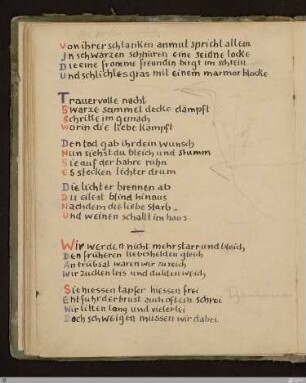 Von ihrer schlanken anmut spricht allein
In schwarzen schnüren eine seidne locke
Die eine fromme freundin birgt im schrein
Und schlichtes gras mit einem marmorblocke
Trauervolle nacht
Swarze sammetdecke dämpft
Schritte im gemach
Worin die liebe kämpft
Den tod gab ihr dein wunsch
Nun siehst du bleich und stumm
Sie auf der bahre ruhn
Es stecken lichter drum
Die lichter brennen ab
Du eilest blind hinaus
Nachdem die liebe starb –
Und weinen schallt im haus
—
Wir werden nicht mehr starr und bleich
Den früheren liebeshelden gleich
An trübsal waren wir zu reich
Wir zucken leis und dulden weich
Sie hiessen tapfer hiessen frei
Entfuhr der brust auch oft ein schrei
Wir litten lang und vielerlei
Doch schweigen müssen wir dabei